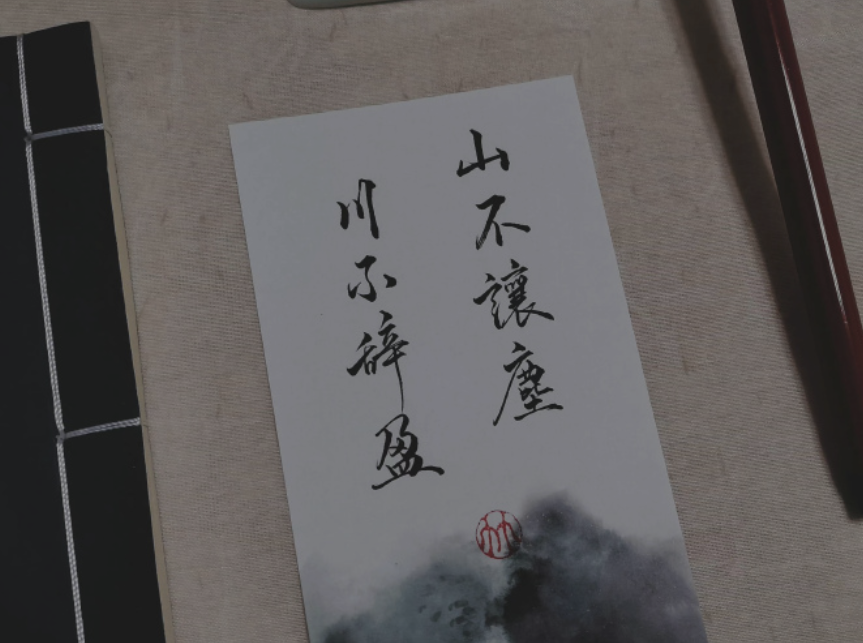 山不讓塵
川不辭盈